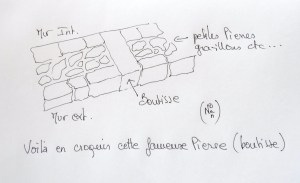 Mur Int.
petites Pierres
gravillons etc...
Boutisse
Mur ext.
Voilà en croquis cette fameuse Pierre (boutisse)